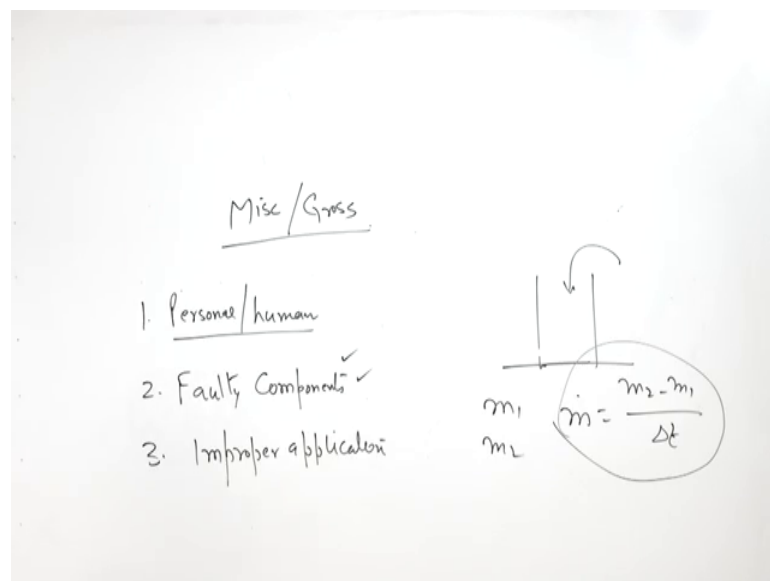 Misc/Gross
1. Personal/human
2. Faulty Components
3. Improper application
m₁
m₂
ṁ = (m₂ - m₁)/Δt